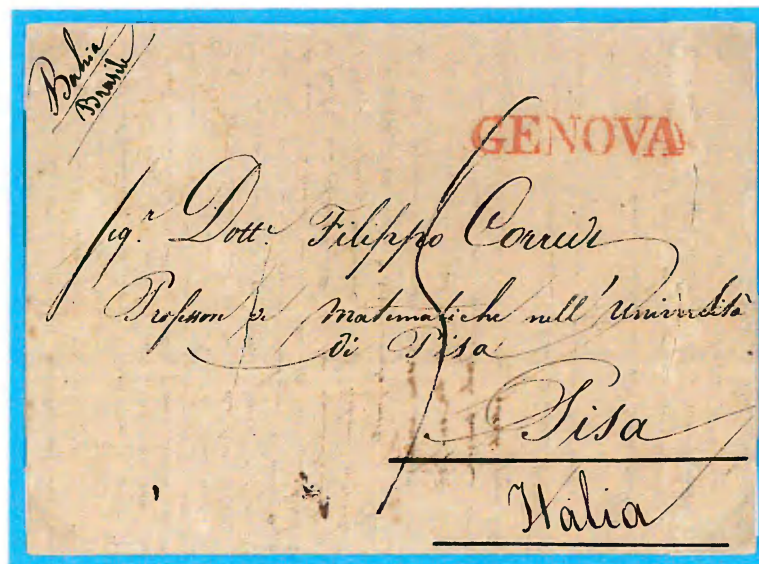 Bahia
Brasile
GENOVA
Sig.r Dott.e Filippo Corridi
Professore di Matematiche nell' Università
di Pisa
Pisa
Italia